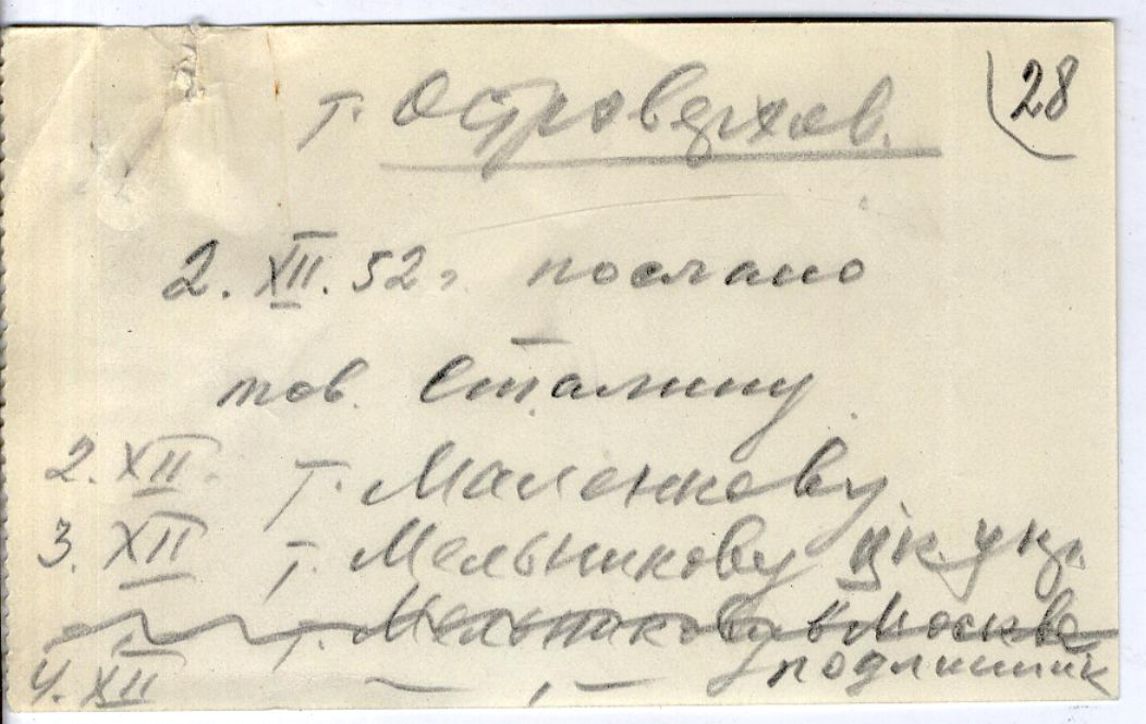 28
т. Островерхов.
2. XII. 52 г. послано
тов. Сталину.
2. XII. т. Маленкову.
3. XII т. Мельникову ЦК Укр.
т. Мельникову в Москве
4. XII — „ — подлинник